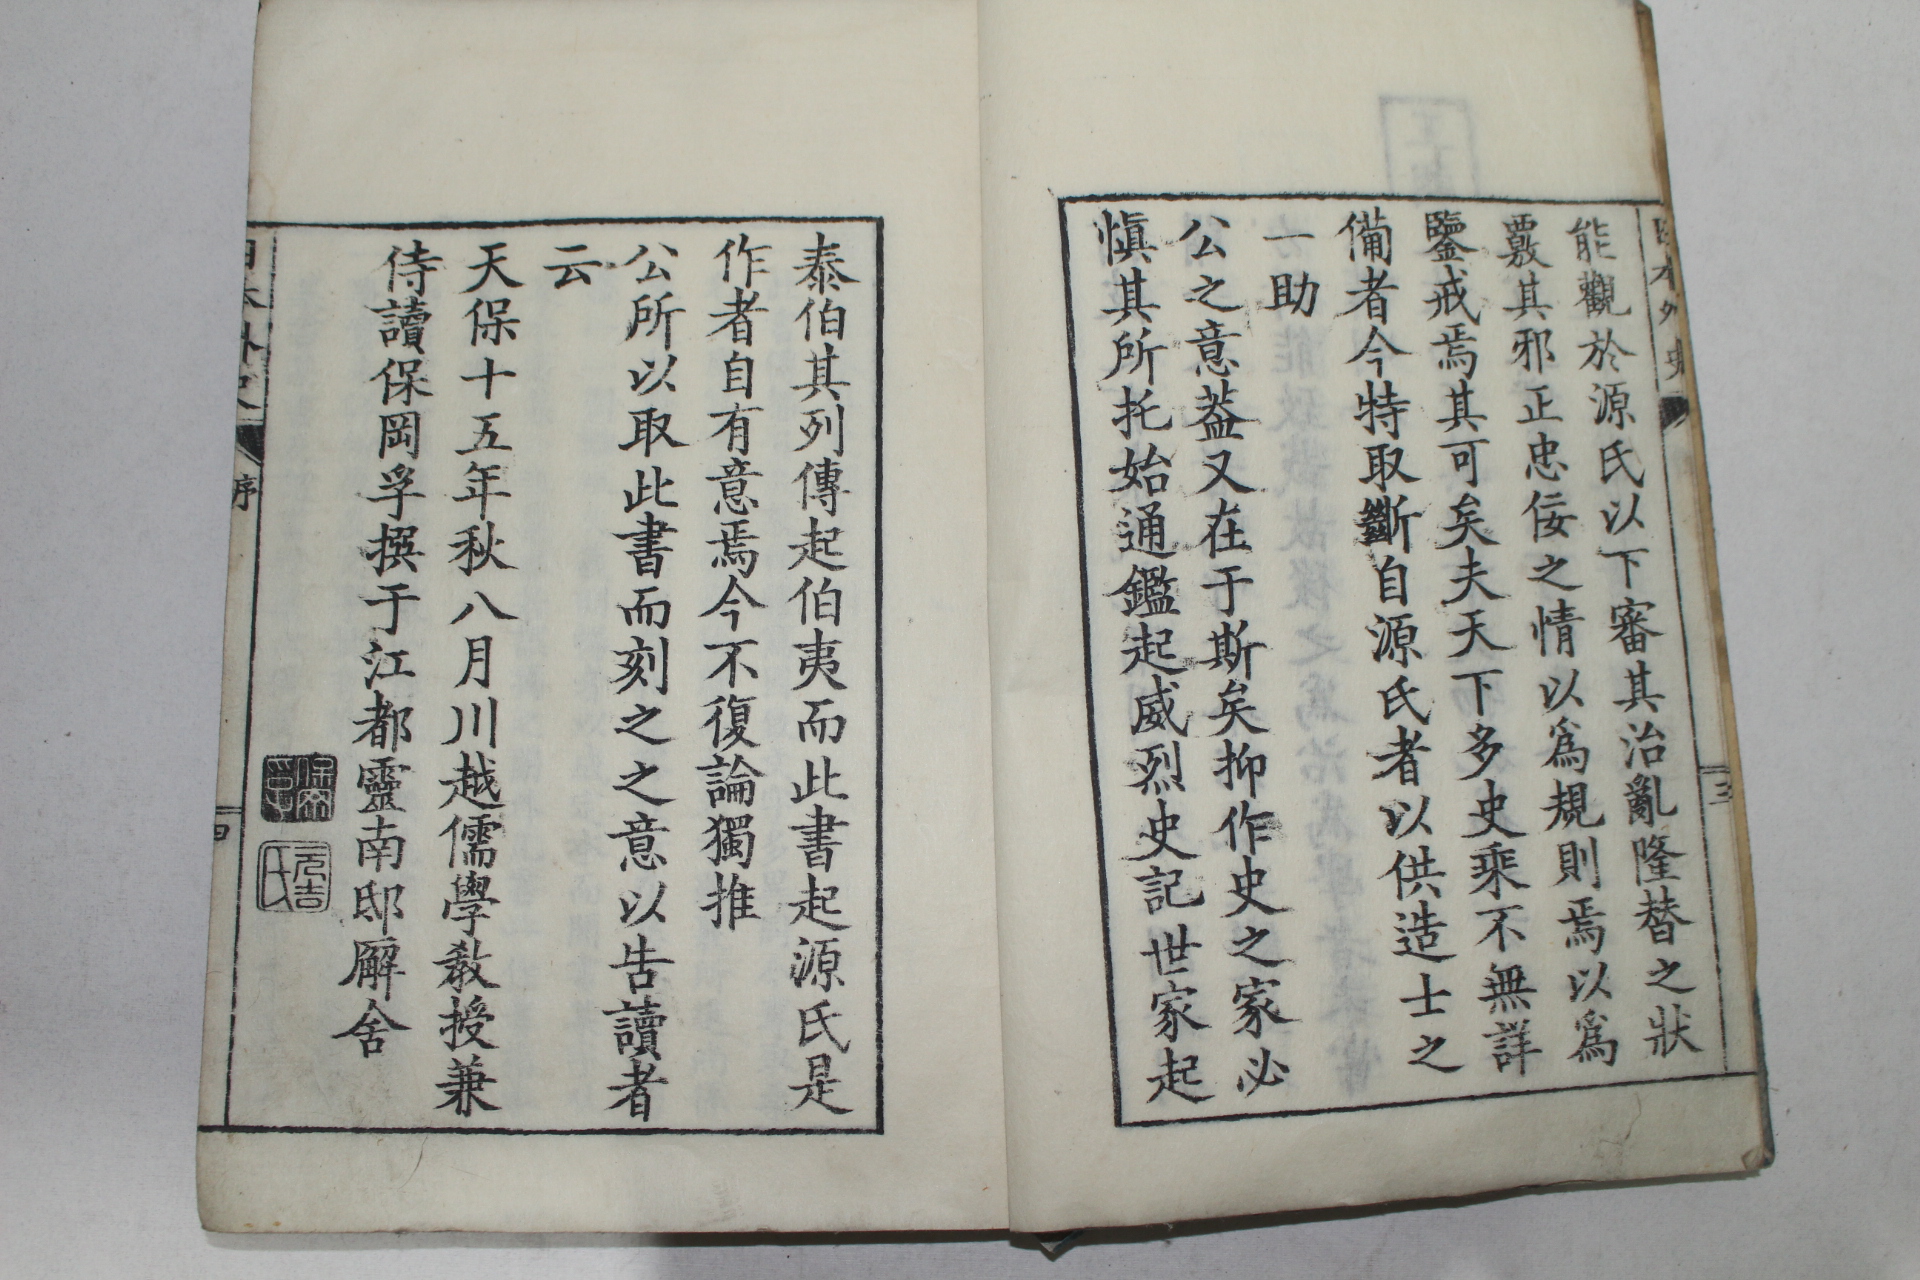 日本外史
三
能觀於源氏以下審其治亂隆替之狀
覈其邪正忠佞之情以爲規則焉以爲
鑒戒焉其可矣夫天下多史乘不無詳
備者今特取斷自源氏者以供造士之
一助
公之意葢又在于斯矣抑作史之家必
愼其所托始通鑑起威烈史記世家起
泰伯其列傳起伯夷而此書起源氏是
作者自有意焉今不復論獨推
公所以取此書而刻之之意以告讀者
云
天保十五年秋八月川越儒學敎授兼
侍讀保岡孚撰于江都靈南邸廨舍
元吉氏
日本外史
序
四